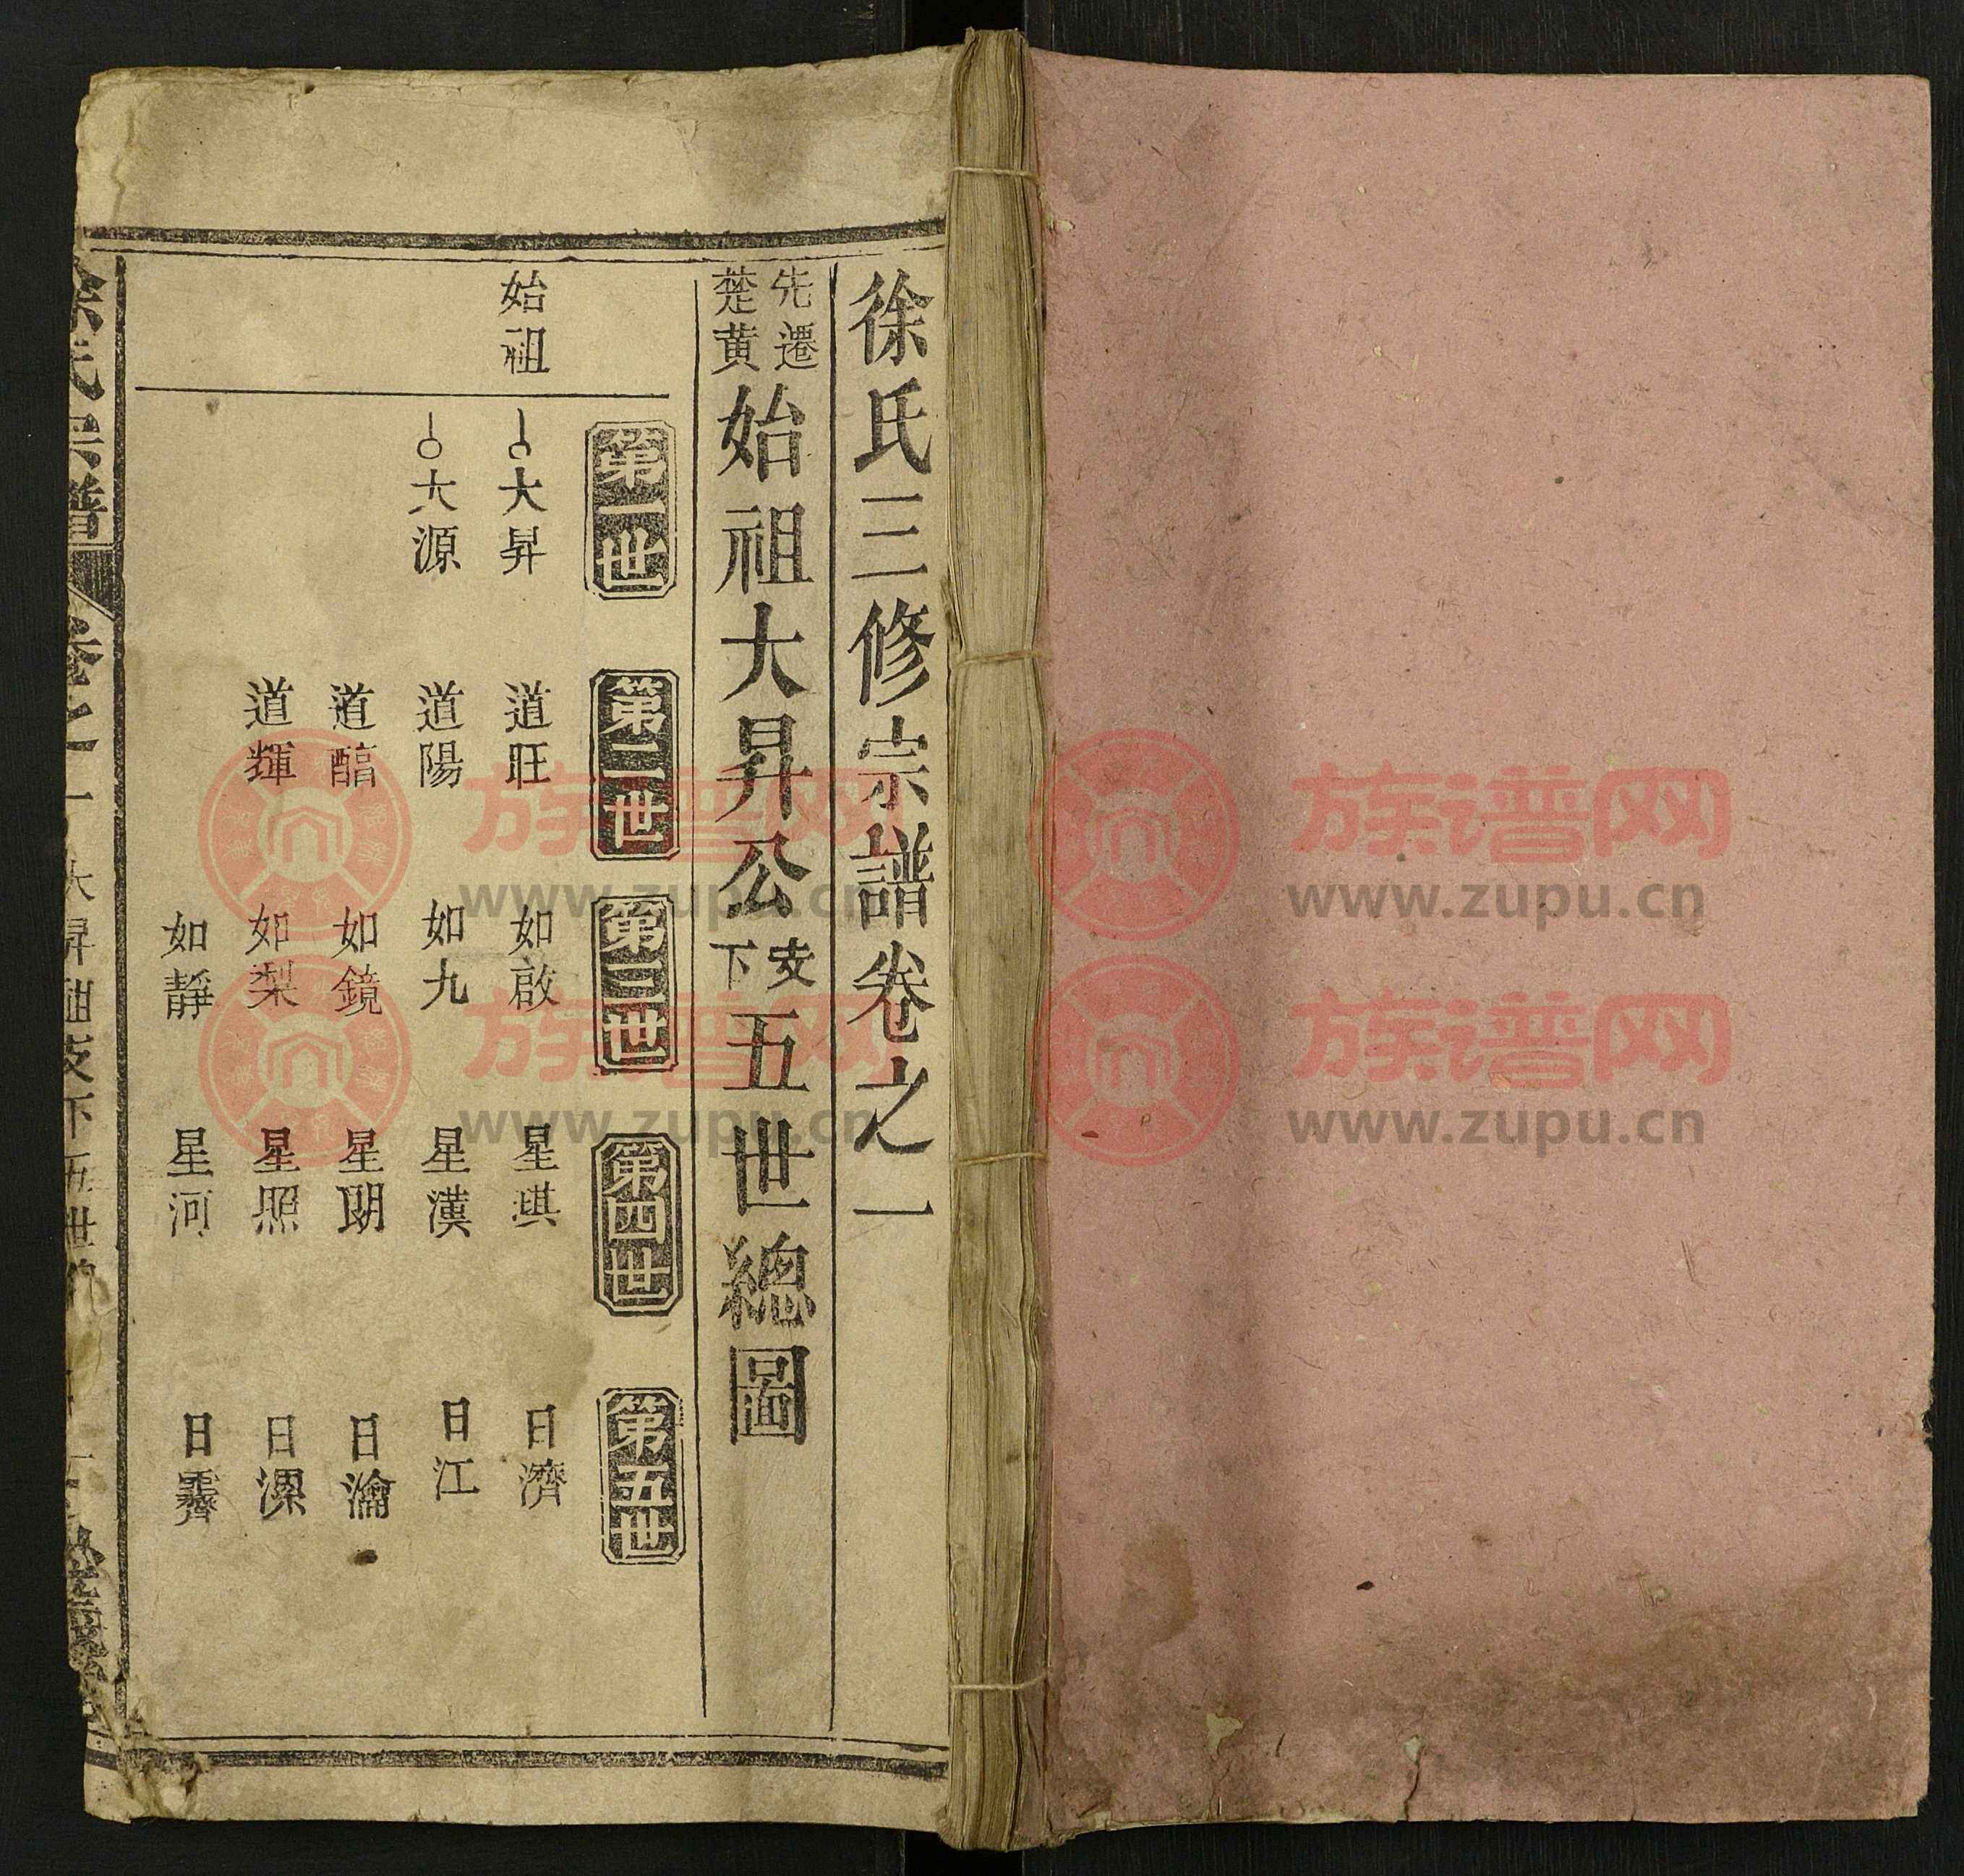 徐氏三修宗譜卷之一
先遷楚黄始祖大昇公支下五世總圖
第一世
第二世
第三世
第四世
第五世
始祖
大昇
道旺
如啟
星琪
日濟
大源
道陽
如九
星漢
日江
道醕
如鏡
星朗
日瀹
道輝
如梨
星照
日潔
如靜
星河
日霽
徐氏宗譜
卷之一
大昇祖支下五世
族谱网
www.zupu.cn
族谱网
www.zupu.cn
族谱网
www.zupu.cn
族谱网
www.zupu.cn